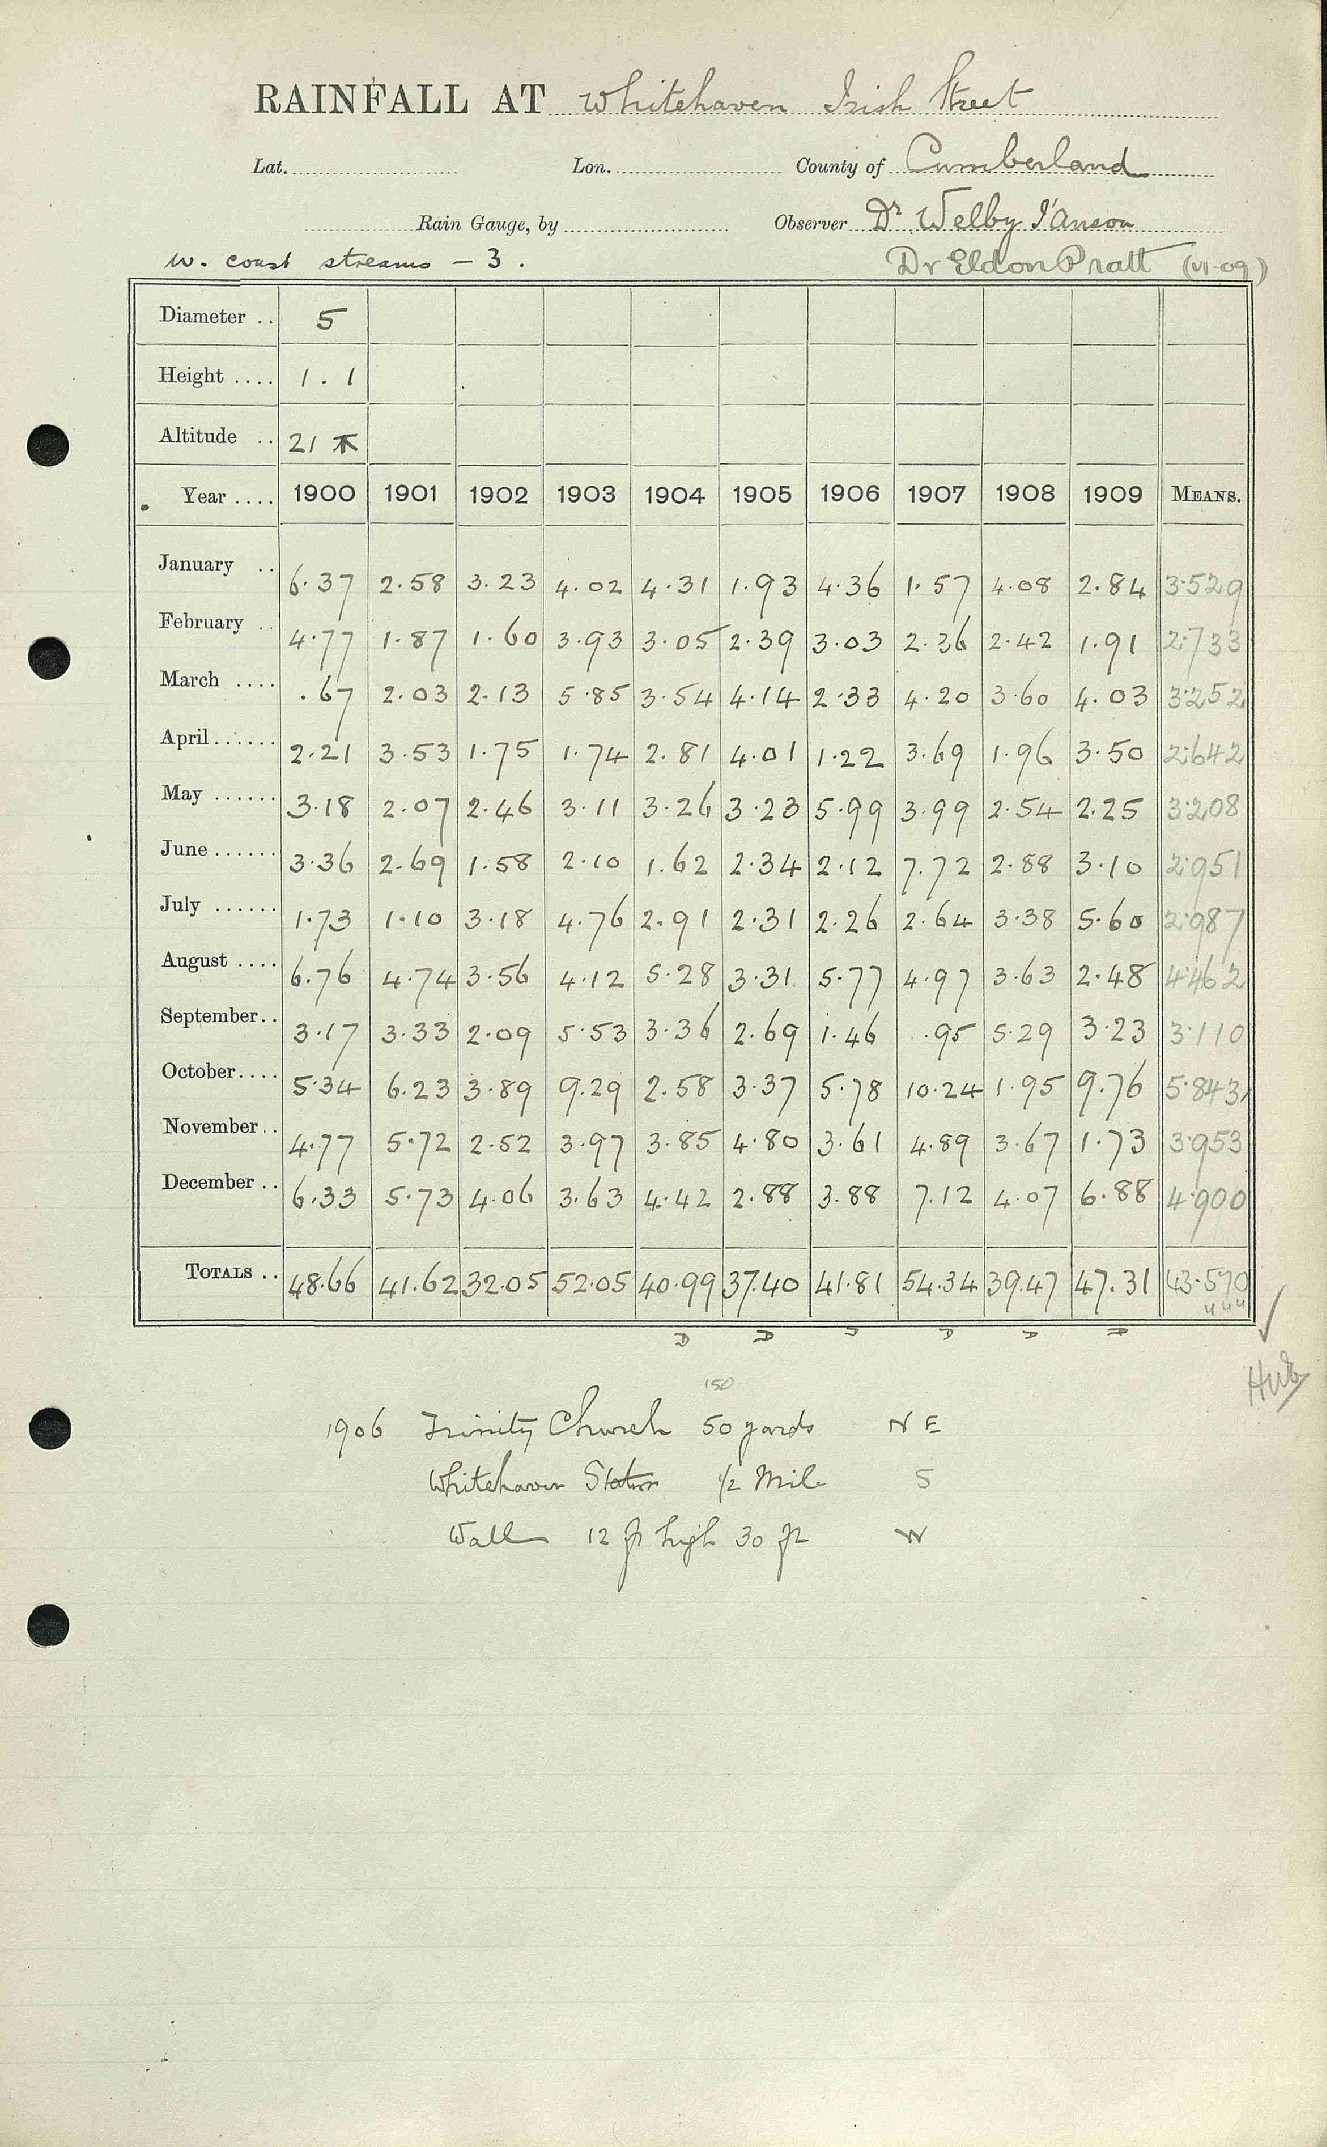 RAINFALL AT Whitehaven Irish Street
Lat. Lon. County of Cumberland
Rain Gauge, by Observer Dr Welby I'Anson
W. coast streams - 3. Dr Eldon Pratt (VI-09)
Diameter .. 5
Height .... 1.1
Altitude .. 21
Year .... 1900 1901 1902 1903 1904 1905 1906 1907 1908 1909 MEANS.
January .. 6.37 2.58 3.23 4.02 4.31 1.93 4.36 1.57 4.08 2.84 3.529
February .. 4.77 1.87 1.60 3.93 3.05 2.39 3.03 2.36 2.42 1.91 2.733
March .... .67 2.03 2.13 5.85 3.54 4.14 2.33 4.20 3.60 4.03 3.252
April...... 2.21 3.53 1.75 1.74 2.81 4.01 1.22 3.69 1.96 3.50 2.642
May ...... 3.18 2.07 2.46 3.11 3.26 3.23 5.99 3.99 2.54 2.25 3.208
June...... 3.36 2.69 1.58 2.10 1.62 2.34 2.12 7.72 2.88 3.10 2.951
July ...... 1.73 1.10 3.18 4.76 2.91 2.31 2.26 2.64 3.38 5.60 2.987
August .... 6.76 4.74 3.56 4.12 5.28 3.31 5.77 4.97 3.63 2.48 4.462
September.. 3.17 3.33 2.09 5.53 3.36 2.69 1.46 .95 5.29 3.23 3.110
October.... 5.34 6.23 3.89 9.29 2.58 3.37 5.78 10.24 1.95 9.76 5.843
November.. 4.77 5.72 2.52 3.97 3.85 4.80 3.61 4.89 3.67 1.73 3.953
December .. 6.33 5.73 4.06 3.63 4.42 2.88 3.88 7.12 4.07 6.88 4.900
TOTALS .. 48.66 41.62 32.05 52.05 40.99 37.40 41.81 54.34 39.47 47.31 43.570
150
1906 Trinity Church 50 yards NE
Whitehaven Station 1/2 Mile S
Wall 12 ft high 30 ft W